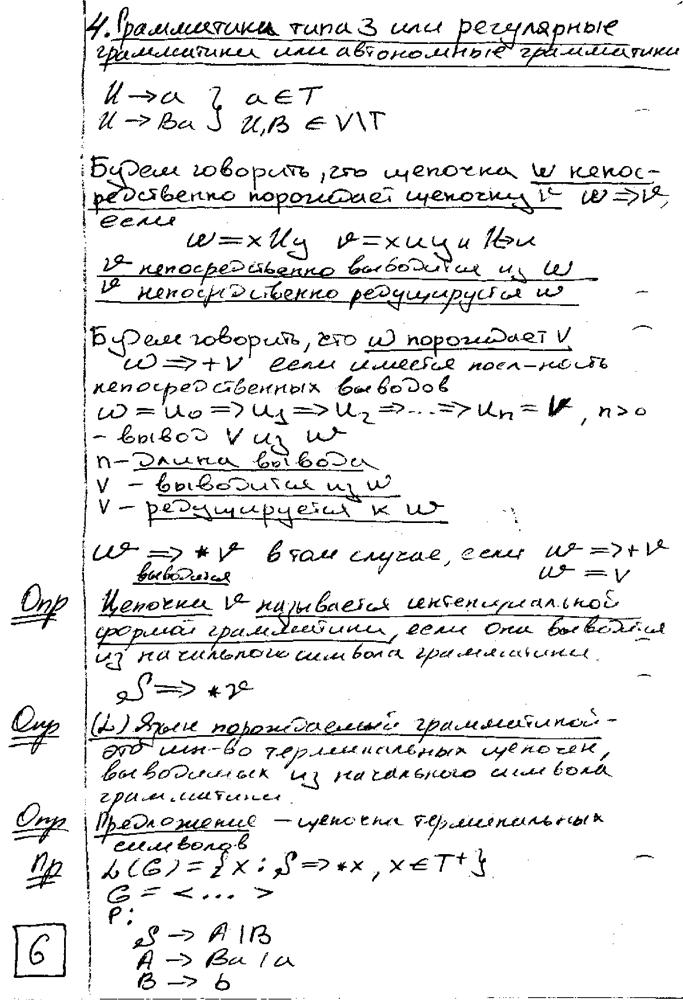 4. Грамматики типа 3 или регулярные
грамматики или автономные грамматики
U → a } a ∈ T
U → Ba } U, B ∈ V\T
Будем говорить, что цепочка w непос-
редственно порождает цепочку v w => v,
если
w = xUy v = xuy и U→u
v непосредственно выводится из w
v непосредственно редуцируется w
Будем говорить, что w порождает V
w => + V если имеется посл-ность
непосредственных выводов
w = u₀ => u₁ => u₂ => ... => uₙ = V, n>0
- вывод V из w
n - длина вывода
V - выводится из w
V - редуцируется к w
w => * v в том случае, если w => + v
выводится w = v
Опр Цепочка v называется интенциальной
формой грамматики, если она выводится
из начального символа грамматики.
S => * v
Опр (L) Язык порождаемый грамматикой -
это мн-во терминальных цепочек,
выводимых из начального символа
грамматики.
Опр Предложение - цепочка терминальных
символов
Пр L(G) = {x : S => * x, x ∈ T⁺}
G = < ... >
P:
S → A | B
A → Ba | a
B → b
6